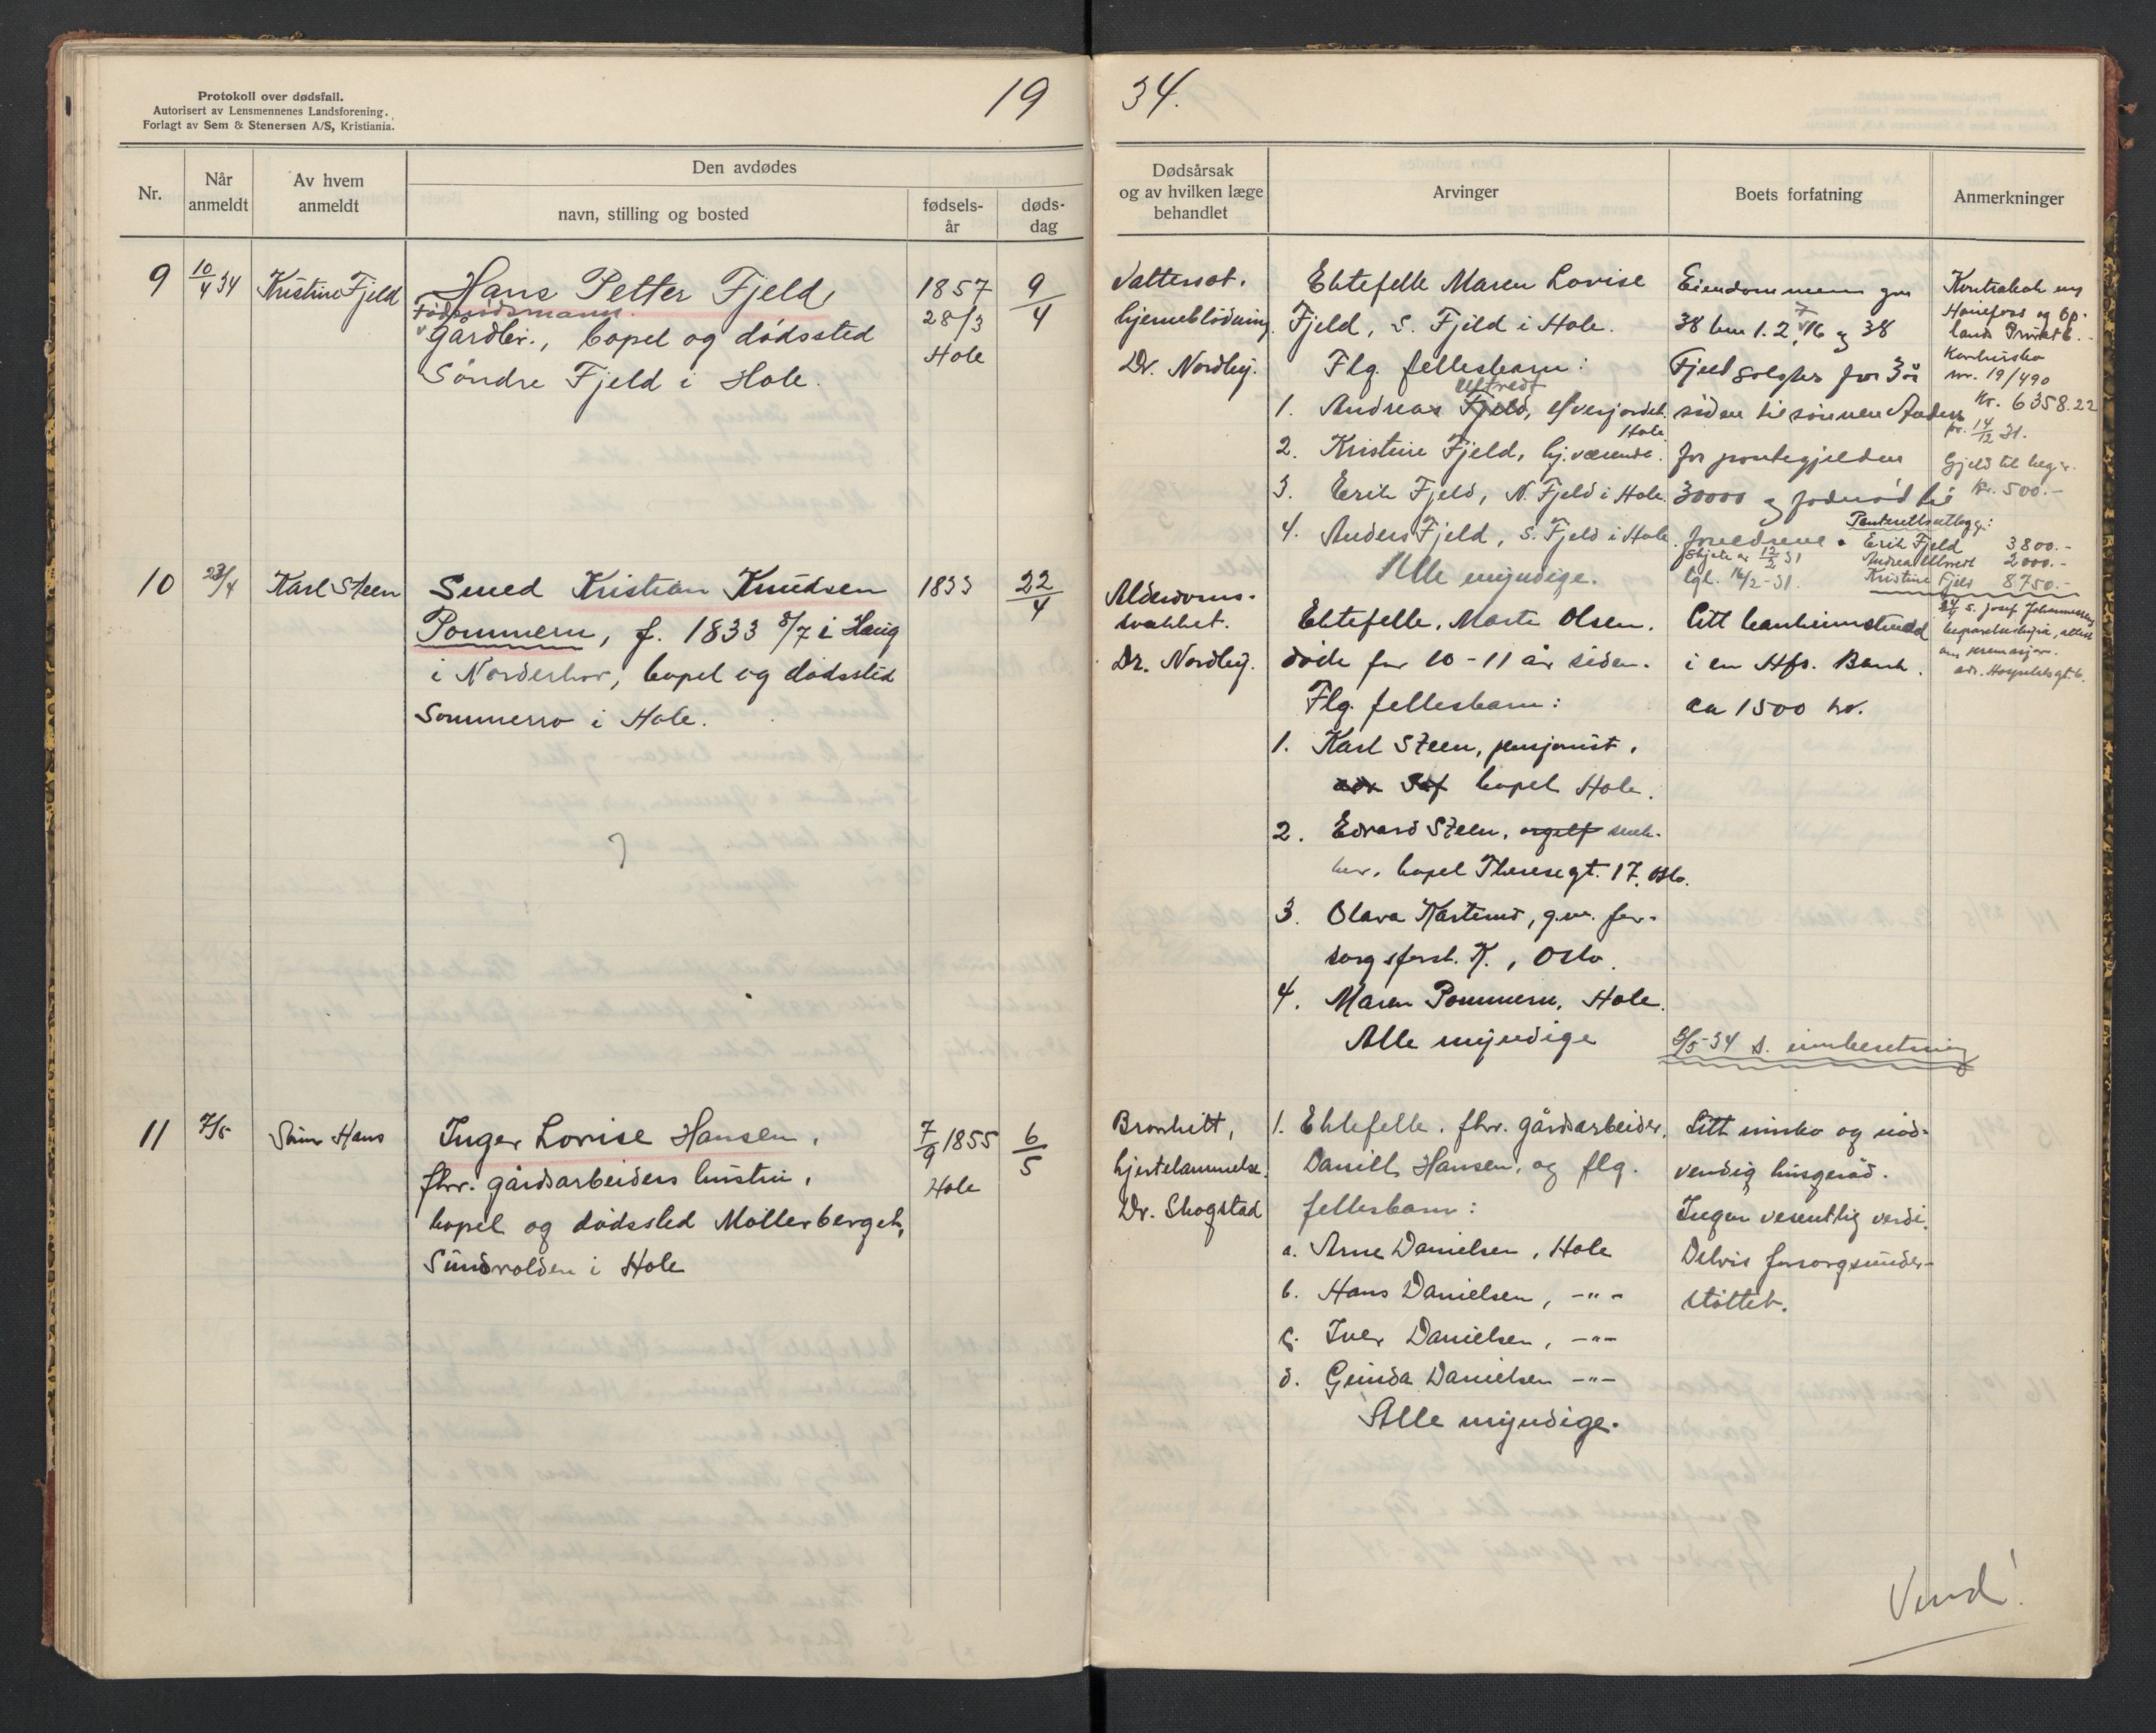 Protokoll over dødsfall.
Autorisert av Lensmennenes Landsforening.
Forlagt av Sem & Stenersen A/S, Kristiania.
19
Nr.
Når anmeldt
Av hvem anmeldt
Den avdødes
navn, stilling og bosted
fødsels-
år
døds-
dag
9
10/4 34
Kristine Fjeld
Hans Petter Fjeld,
Föderådsmann.
Gårdbr., bopel og dödssted
Söndre Fjeld i Hole.
1857
28/3
Hole
9/4
10
23/4
Karl Steen
Smed Kristian Knudsen
Pommern, f. 1833 8/7 i Haug
i Norderhov, bopel og dödssted
Sommerro i Hole.
1833
22/4
11
7/5
Sönn Hans
Inger Lovise Hansen,
fhv. gårdsarbeiders hustru,
bopel og dödssted Möllerberget,
Sundvolden i Hole
7/9 1855
Hole
6/5
34.
Dødsårsak
og av hvilken læge
behandlet
Arvinger
Boets forfatning
Anmerkninger
Vattersot.
hjerneblödning.
Dr. Nordby.
Ektefelle Maren Lovise
Fjeld, S. Fjeld i Hole.
Flg. fellesbarn:
Ullredt
1. Andrea Fjeld,
Hole
2. Kristine Fjeld, hj.værende.
3. Erik Fjeld, N. Fjeld i Hole.
4. Anders Fjeld, S. Fjeld i Hole.
Alle myndige.
Eiendommen gnr
38 bnr 1. 2, 7 16 og 38
Fjeld solgtes for 3 år
siden til sönnen Anders
for pantegjelden
30000 og föderåd til
foreldrene.
Skjöte av 12/2 31
tgl. 16/2-31.
Panterettsutlegg:
Erik Fjeld 3800.-
Andrea Ullredt 2000.-
Kristine Fjeld 8750.-
Kontrabok
Hönefoss og Op-
lands Privatb.
nr. 19/490
kr. 6358.22
pr. 14/12 31.
Gjeld til begr.
kr. 500.-
Alderdoms-
svakhet.
Dr. Nordby.
Ektefelle, Marte Olsen.
döde for 10-11 år siden.
Flg. fellesbarn:
1. Karl Steen, pensjonist,
bopel Hole.
2. Edvard Steen,
bopel Theresegt. 17, Oslo.
3. Olava Karterud, g.m. for-
sorgsforst. K., Oslo.
4. Maren Pommern, Hole.
Alle myndige
Litt bankinnskudd
i en Hfs. Bank.
ca 1500 kr.
6/5-34 s. innberetning
24/4 s. Josef Johannessen
begravelsesbyrå, attest
om kremasjon.
adr. Hospitalsgt. 6.
Bronkitt,
hjertelammelse.
Dr. Skogstad
1. Ektefelle. fhv. gårdsarbeider,
Daniel Hansen, og flg.
fellesbarn:
a. Arne Danielsen, Hole
b. Hans Danielsen, -"-
c. Iver Danielsen, -"-
d. Gunda Danielsen -"-
Alle myndige.
Litt innbo og nöd-
vendig husgeråd.
Ingen vesentlig verdi.
Delvis forsorgsunder-
stöttet.
Vend!